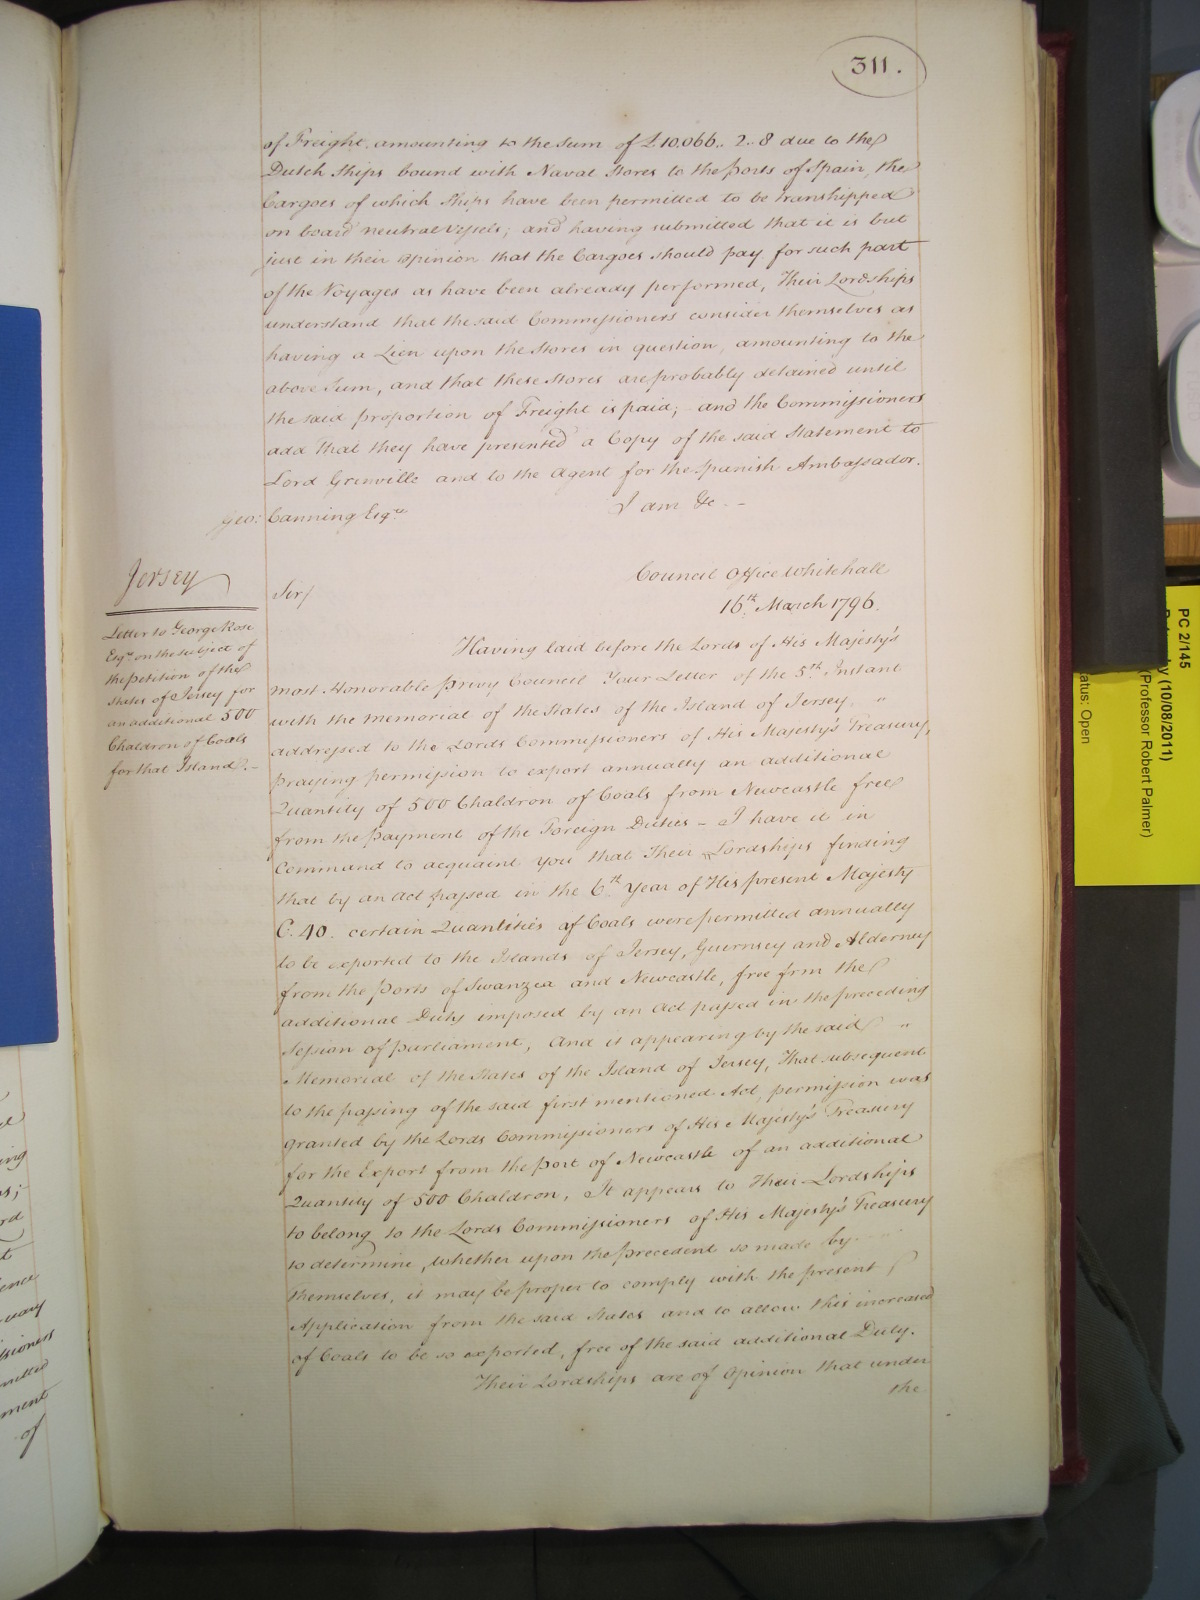 311.
of Freight amounting to the Sum of £10,066.. 2.. 8 due to the
Dutch Ships bound with Naval Stores to the ports of Spain, the
Cargoes of which Ships have been permitted to be transhipped
on board neutral Vessels; and having submitted that it is but
just in their opinion that the Cargoes should pay for such part
of the Voyages as have been already performed, Their Lordships
understand that the said Commissioners consider themselves as
having a Lien upon the Stores in question, amounting to the
above Sum, and that these Stores are probably detained until
the said proportion of Freight is paid; and the Commissioners
add that they have presented a Copy of the said Statement to
Lord Grenville and to the Agent for the Spanish Ambassador.
I am &c. -
Geo: Canning Esqre
Jersey
Letter to George Rose
Esqr. on the subject of
the petition of the
States of Jersey for
an additional 500
Chaldron of Coals
for that Island. -
Council Office Whitehall
16th March 1796.
Sir/
Having laid before the Lords of His Majesty's
most Honorable Privy Council Your Letter of the 5th Instant
with the memorial of the States of the Island of Jersey, "
addressed to the Lords Commissioners of His Majesty's Treasury,
praying permission to export annually an additional
Quantity of 500 Chaldron of Coals from Newcastle free
from the payment of the Foreign Duties - I have it in
Command to acquaint you that Their Lordships finding
that by an Act passed in the 6th Year of His present Majesty
C. 40. certain Quantities of Coals were permitted annually
to be exported to the Islands of Jersey, Guernsey and Alderney
from the ports of Swanzea and Newcastle, free frm the
additional Duty imposed by an Act passed in the preceding
Session of parliament, And it appearing by the said "
Memorial of the States of the Island of Jersey, That subsequent
to the passing of the said first mentioned Act, permission was
granted by the Lords Commissioners of His Majesty's Treasury
for the Export from the port of Newcastle of an additional
Quantity of 500 Chaldron, It appears to Their Lordships
to belong to the Lords Commissioners of His Majesty's Treasury
to determine, whether upon the precedent so made by "
themselves, it may be proper to comply with the present
Application from the said States and to allow this increased
of Coals to be so exported, free of the said additional Duty.
Their Lordships are of Opinion that under
the
PC 2/145
by (10/08/2011)
(Professor Robert Palmer)
atus: Open
ing
rd
t
ence
uary
ssioners
ment
of